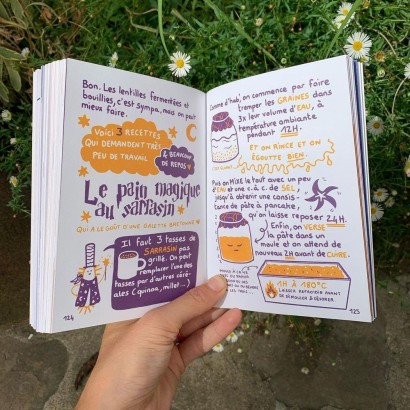 Bon. Les lentilles fermentées et
bouillies, c'est sympa, mais on peut
mieux faire.
Voici 3 RECETTES
QUI DEMANDENT TRÈS
PEU DE TRAVAIL
& BEAUCOUP
DE REPOS
Le pain magique
au sarrasin
QUI A LE GOÛT D'UNE GALETTE BRETONNE
Il faut 3 tasses de
SARRASIN pas
grillé. On peut
remplacer l'une des
tasses par d'autres céré-
ales (quinoa, millet...)
124
Comme d'hab', on commence par faire
tremper les GRAINES dans
3x leur volume d'EAU, à
température ambiante
pendant 12H.
Et on RINCE et ON
ÉGOUTTE BIEN
Puis on MIXE le tout avec un peu
d'EAU et une c. à c. de SEL,
jusqu'à obtenir une consis-
tance de pâte à pancake,
qu'on laisse reposer 24H.
Enfin, on VERSE
la pâte dans un
moule et on attend de
nouveau 2H avant de CUIRE
1H À 180°C
LAISSER REFROIDIR AVANT
DE DÉMOULER & DÉVORER.
125